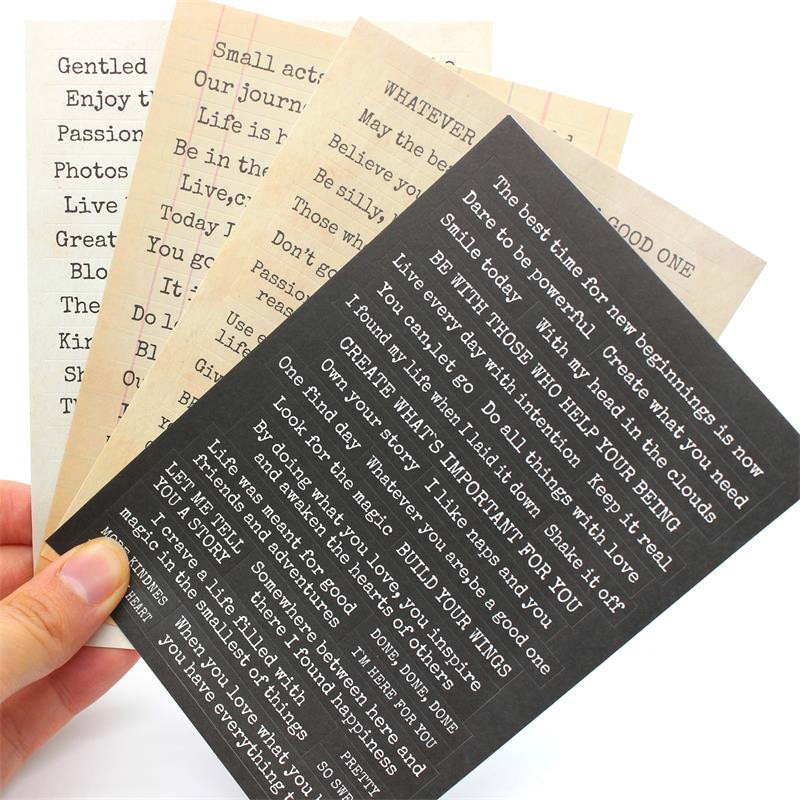 Gentled
Enjoy
Passion
Photos
Live
Great
Blo
The
Kin
Sh
Small acts
Our journ
Life is
Be in the
Live,
Today
You go
It
Do
Bl
Ou
WHATEVER
GOOD ONE
May the
Believe you
Be silly,
Those
Don't go
Passion
reas
Use
life
Giv
The best time for new beginnings is now
Dare to be powerful
Create what you need
Smile today
With my head in the clouds
BE WITH THOSE WHO HELP YOUR BEING
Keep it real
Live every day with intention
Do all things with love
You can,let go
Shake it off
I found my life when I laid it down
CREATE WHAT'S IMPORTANT FOR YOU
Own your story
I like naps and you
One find day
Whatever you are,be a good one
Look for the magic
BUILD YOUR WINGS
By doing what you love, you inspire
and awaken the hearts of others
DONE, DONE, DONE
Life was meant for good
friends and adventures
I'M HERE FOR YOU
LET ME TELL
YOU A STORY
Somewhere between here and
there I found happiness
PRETTY
I crave a life filled with
magic in the smallest of things
SO SWE
MORE KINDNES
HEART
When you love what you
you have everything